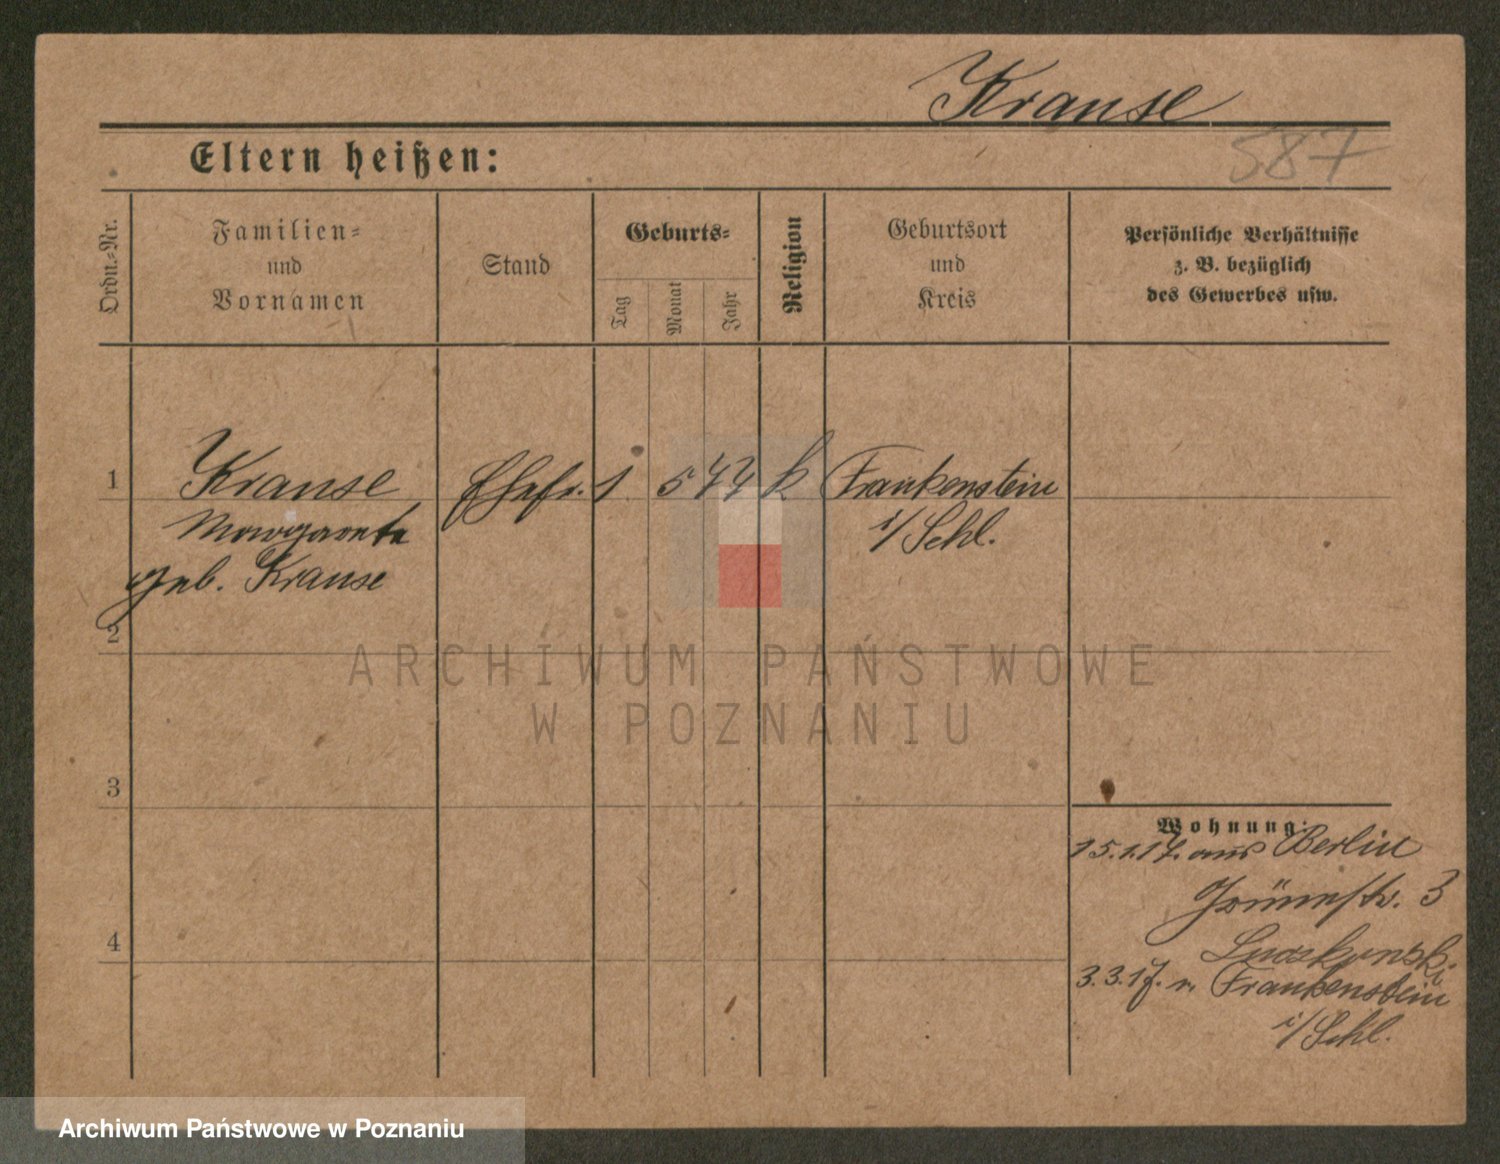 Krause
587
Eltern heißen:
Ordn.-Nr.
Familien-
und
Vornamen
Stand
Geburts-
Tag
Monat
Jahr
Religion
Geburtsort
und
Kreis
Persönliche Verhältnisse
z. B. bezüglich
des Gewerbes usw.
1 Krause Ehefr. 1 5 74 k Frankenstein
Margarete i/Schl.
geb. Krause
2
ARCHIWUM PAŃSTWOWE
W POZNANIU
3
Wohnung:
15.1.17. aus Berlin
Grünestr. 3
4
3.3.17. n. Frankenstein
i/Schl.
Archiwum Państwowe w Poznaniu